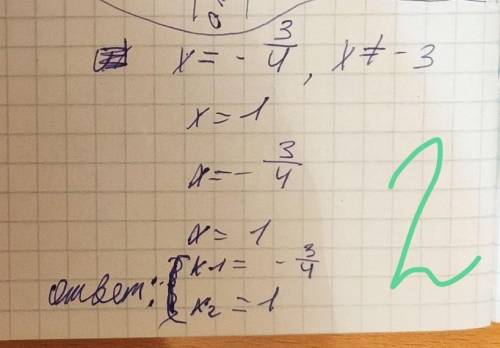 x = - 3/4, x ≠ - 3
x = 1
x = - 3/4
x = 1
ответ: x1 = - 3/4
x2 = 1
2